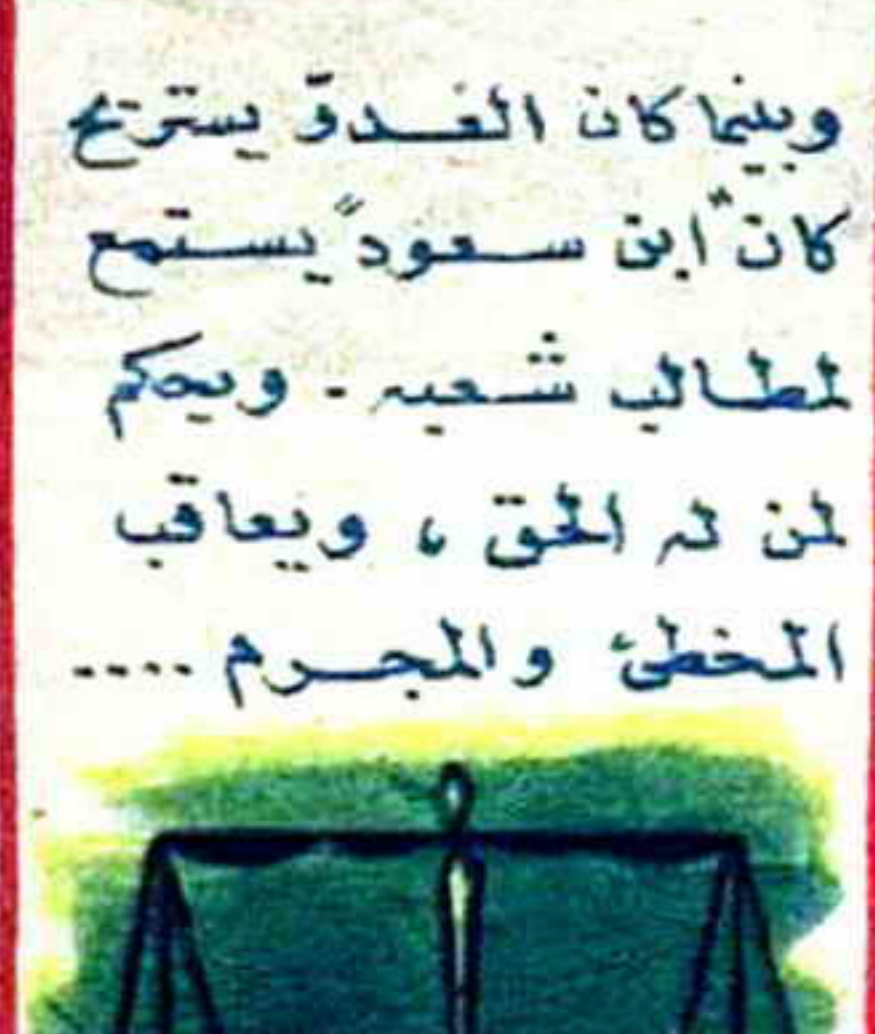 وبينما كان العدوّ يستريح
كان "ابن سعود" يستمع
لمطالب شعبه - ويحكم
لمن له الحق ، ويعاقب
المخطئ والمجرم ....